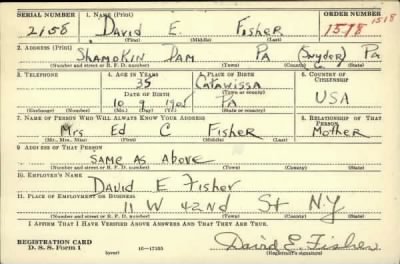 SERIAL NUMBER 1. NAME (Print) ORDER NUMBER
2158 David E. Fisher 1518 1518
(First) (Middle) (Last)
2. ADDRESS (Print)
SHAMOKIN DAM PA (Snyder) Pa
(Number and street or R. F. D. number) (Town) (County) (State)
3. TELEPHONE 4. AGE IN YEARS 5. PLACE OF BIRTH 6. COUNTRY OF CITIZENSHIP
35 CATAWISSA
DATE OF BIRTH (Town or county)
10 9 1905 PA USA
(Exchange) (Number) (Mo.) (Day) (Yr.) (State or country)
7. NAME OF PERSON WHO WILL ALWAYS KNOW YOUR ADDRESS 8. RELATIONSHIP OF THAT PERSON
Mrs Ed C Fisher Mother
(Mr., Mrs., Miss) (First) (Middle) (Last)
9. ADDRESS OF THAT PERSON
SAME AS ABOVE
(Number and street or R. F. D. number) (Town) (County) (State)
10. EMPLOYER'S NAME
DAVID E Fisher
11. PLACE OF EMPLOYMENT OR BUSINESS
11 W 42ND St N.Y.
(Number and street or R. F. D. number) (Town) (County) (State)
I AFFIRM THAT I HAVE VERIFIED ABOVE ANSWERS AND THAT THEY ARE TRUE.
REGISTRATION CARD
D. S. S. Form 1 16—17105 (over) David E. Fisher
(Registrant's signature)